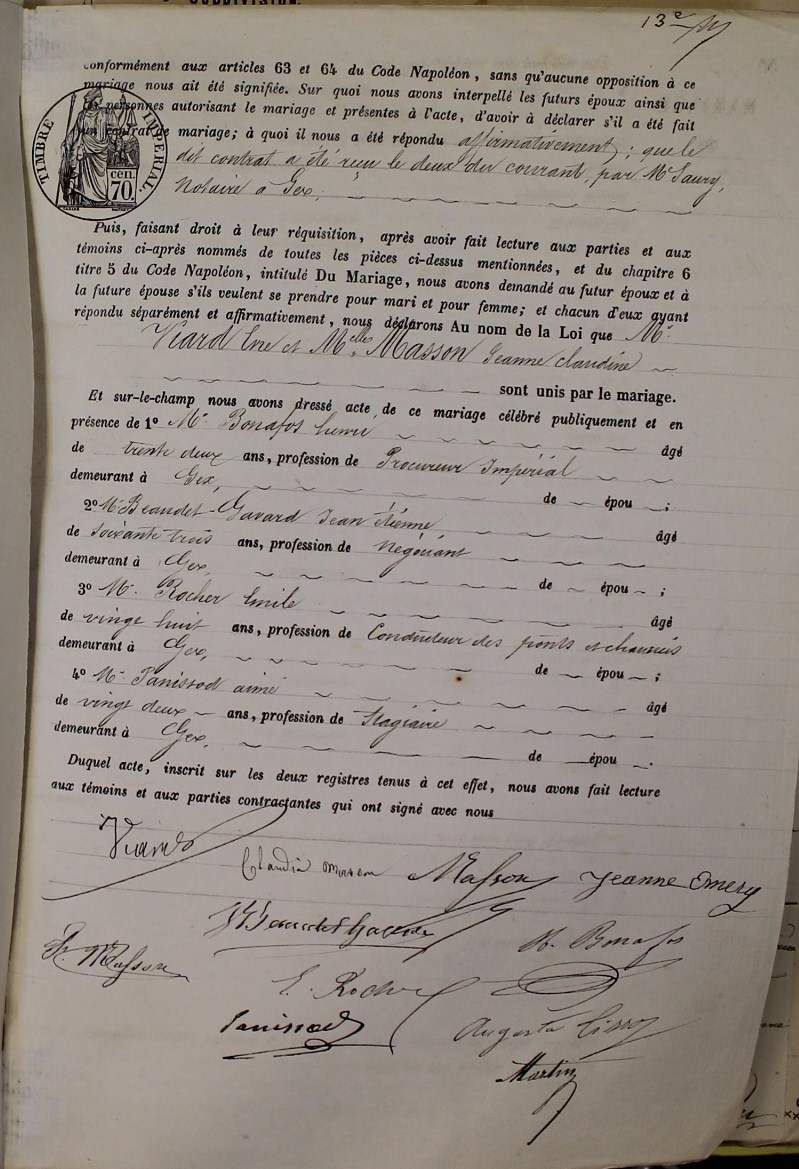 SUBDIVISION.
13e
conformément aux articles 63 et 64 du Code Napoléon, sans qu'aucune opposition à ce
mariage nous ait été signifiée. Sur quoi nous avons interpellé les futurs époux ainsi que
les personnes autorisant le mariage et présentes à l'acte, d'avoir à déclarer s'il a été fait
un contrat de mariage; à quoi il nous a été répondu affirmativement; que le
dit contrat a été reçu le deux du courant, par Me Saury,
Notaire à Gex,
TIMBRE IMPÉRIAL
70 cen.
Puis, faisant droit à leur réquisition, après avoir fait lecture aux parties et aux
témoins ci-après nommés de toutes les pièces ci-dessus mentionnées, et du chapitre 6
titre 5 du Code Napoléon, intitulé Du Mariage, nous avons demandé au futur époux et à
la future épouse s'ils veulent se prendre pour mari et pour femme; et chacun d'eux ayant
répondu séparément et affirmativement, nous déclarons Au nom de la Loi que Mr
Viard Ene et Melle Masson Jeanne Claudine
sont unis par le mariage.
Et sur-le-champ nous avons dressé acte de ce mariage célébré publiquement et en
présence de 1o Mr Bonafos henri âgé
de trente deux ans, profession de Procureur Impérial
demeurant à Gex, de épou ;
2o Mr Beaudet-Gavard Jean Étienne âgé
de soixante trois ans, profession de Négociant
demeurant à Gex, de épou ;
3o Mr Rocher Emile âgé
de vingt huit ans, profession de Conducteur des ponts et chaussées
demeurant à Gex, de épou ;
4o Mr Panissod aimé âgé
de vingt deux ans, profession de Stagiaire
demeurant à Gex, de épou .
Duquel acte, inscrit sur les deux registres tenus à cet effet, nous avons fait lecture
aux témoins et aux parties contractantes qui ont signé avec nous
Viard
Claudia Masson Masson Jeanne Emery
JE Beaudet Gavard H. Bonafos
Masson
E. Rocher
Panissod Augusta
Martin